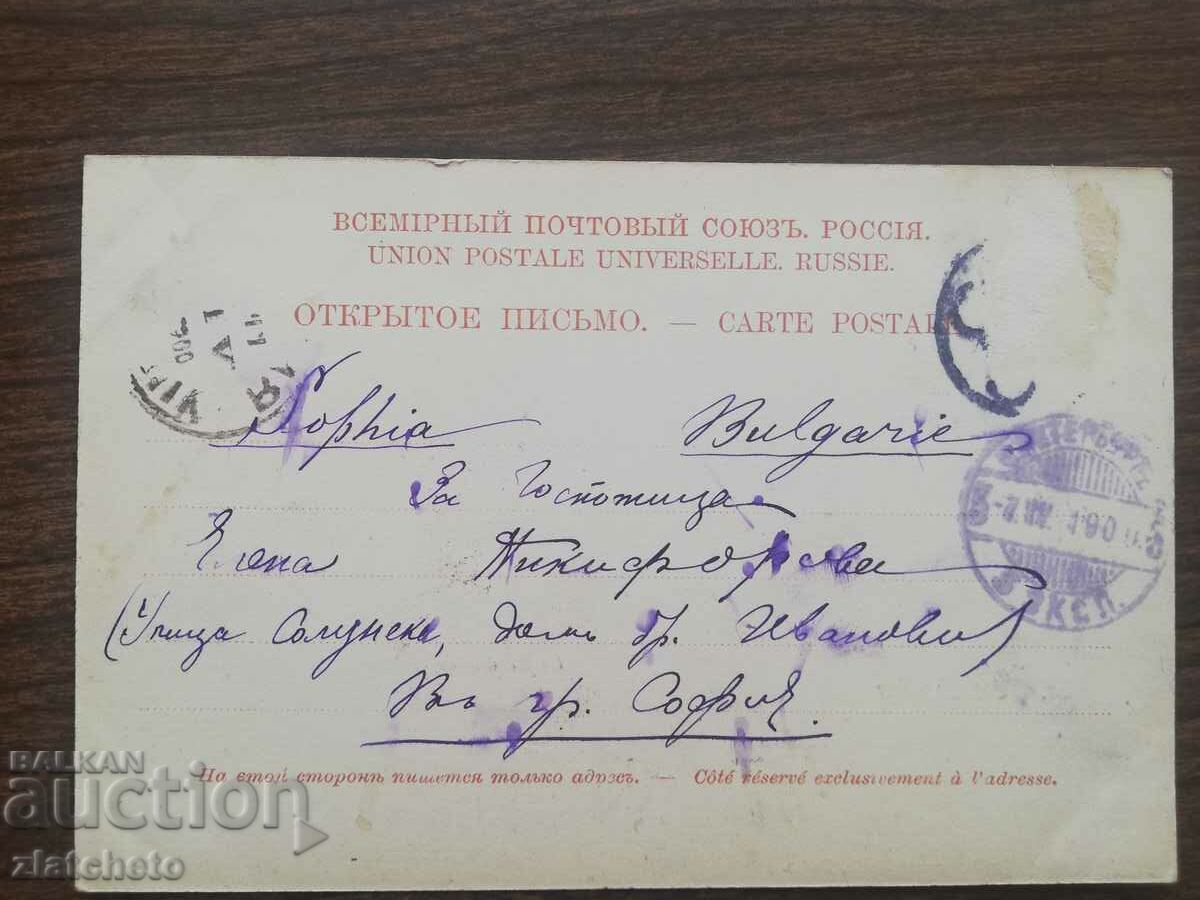 ВСЕМІРНЫЙ ПОЧТОВЫЙ СОЮЗЪ. РОССІЯ.
UNION POSTALE UNIVERSELLE. RUSSIE.
ОТКРЫТОЕ ПИСЬМО. — CARTE POSTALE
Sophia Bulgarie
За Госпожица
Елена Никифорова
(Улица Солунска, домъ бр. Иванови)
Въ гр. София.
На этой сторонѣ пишется только адресъ. — Côté réservé exclusivement à l'adresse.
900
3 - 7 IV 190
ЭКСП.
BALKAN
auction
zlatcheto